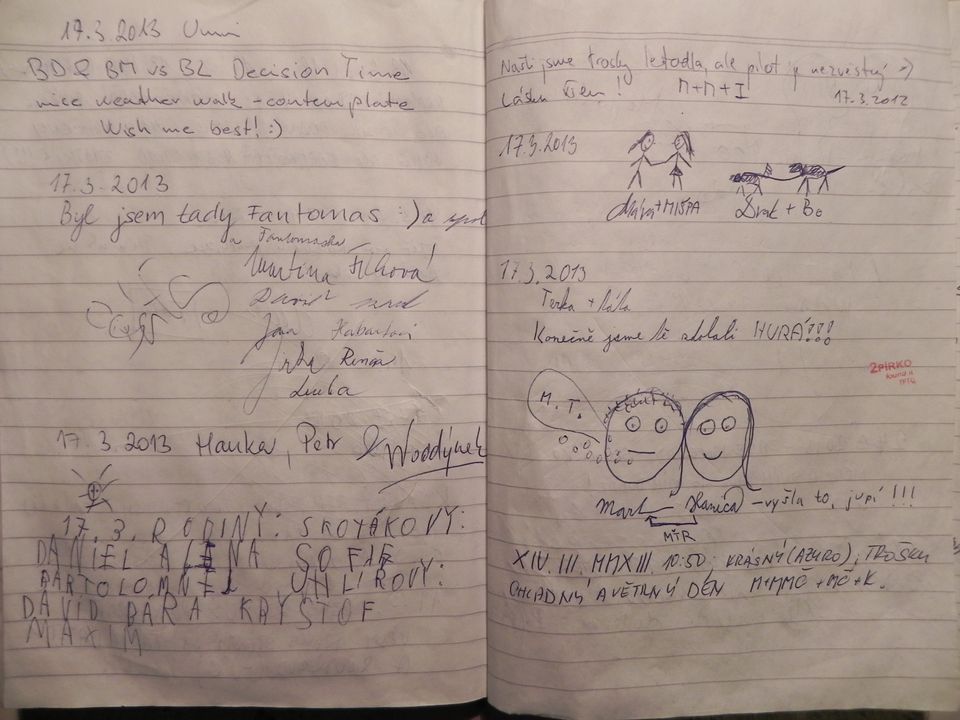 17.3.2013
BD & BM vs BL Decision Time
nice weather walk - contemplate
Wish me best! :)
17.3.2013
Byl jsem tady Fantomas :) a spol
a Fantomaska
Martina
David
Jana
Jirka Renča
Luba
17.3.2013 Hanka, Petr & Woodýnek
17.3. RODINY: SKOTÁKOVY:
DANIEL ALENA SOFIE
BARTOLOMNĚJ UHLÍŘOVY:
DAVID BÁRA KRYŠTOF
MAXIM
Našli jsme trosky letadla, ale pilot je nezvěstný :)
všem! M+M+I 17.3.2012
17.3.2013
Mára+MIŠPA Drak + Bo
17.3.2013
Terka + Kája
Konečně jsme to zdolali HURÁ!!!
2PÍRKO
found it
TFTC
M.T.
Mark Hanica - vyšla to, jupí!!!
MTR
XIV. III. MMXIII 10:50: KRÁSNÝ (AZURO), TROŠKU
CHLADNÝ A VĚTRNÝ DEN M+MMČ+MČ+K.